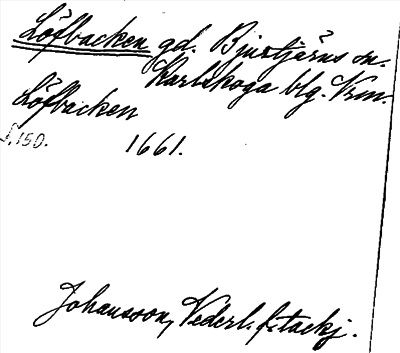 Löfbacken gd. Bjurtjärns sn.
Karlskoga blg. Vrm.
Löfbacken
S. 150. 1661.
Johansson, Vederl. f. tackj.